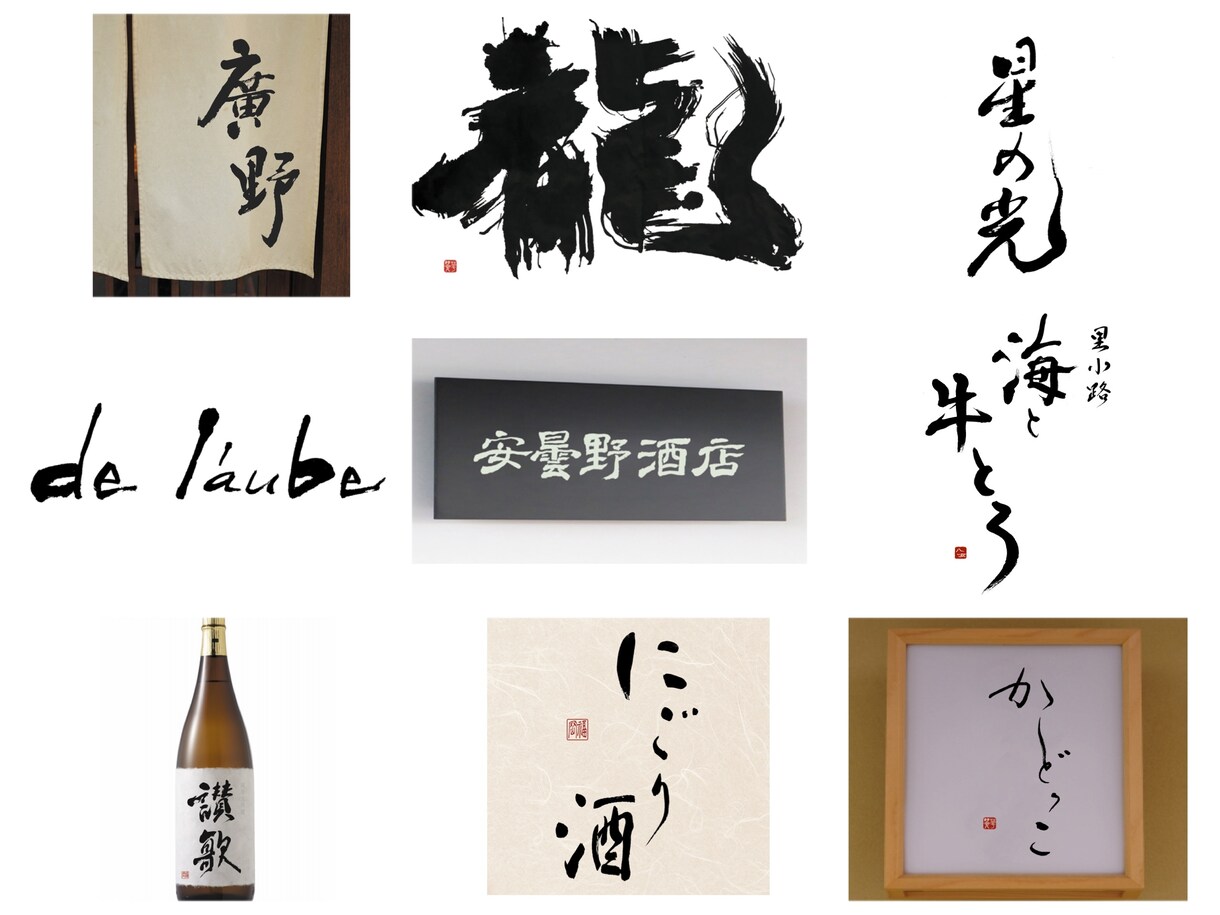 廣野
龍
星の光
de l'aube
安曇野酒店
里小路
海と
牛とろ
讃歌
にごり
酒
かしどっこ